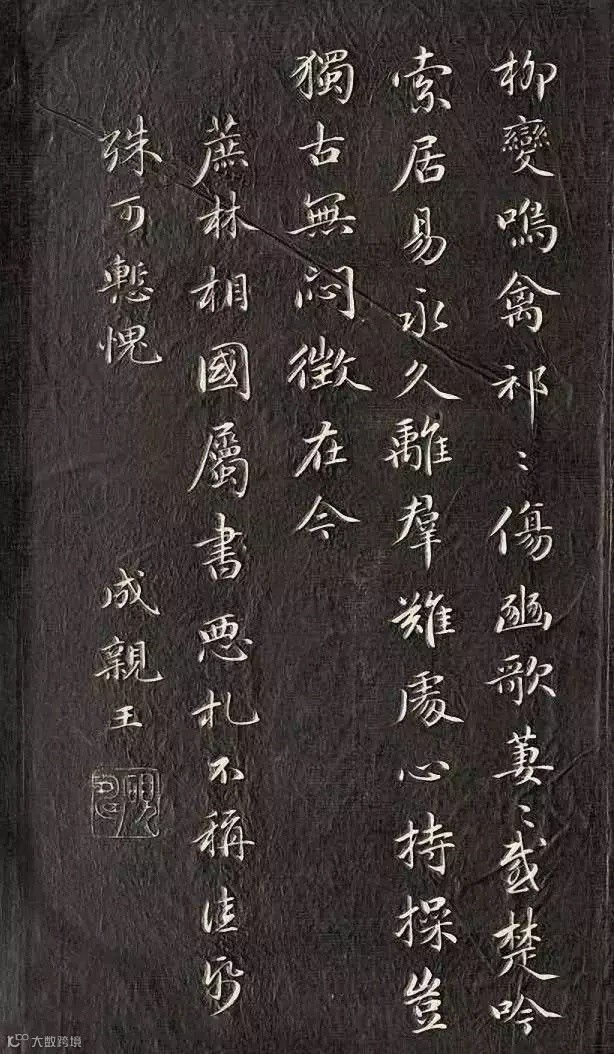 柳變鳴禽祁〻傷豳歌萋〻感楚吟
索居易永久離群難處心持操豈
獨古無悶徵在今
蔗林相國屬書惡札不稱佳紙
殊可慙愧
成親王
大数跨境